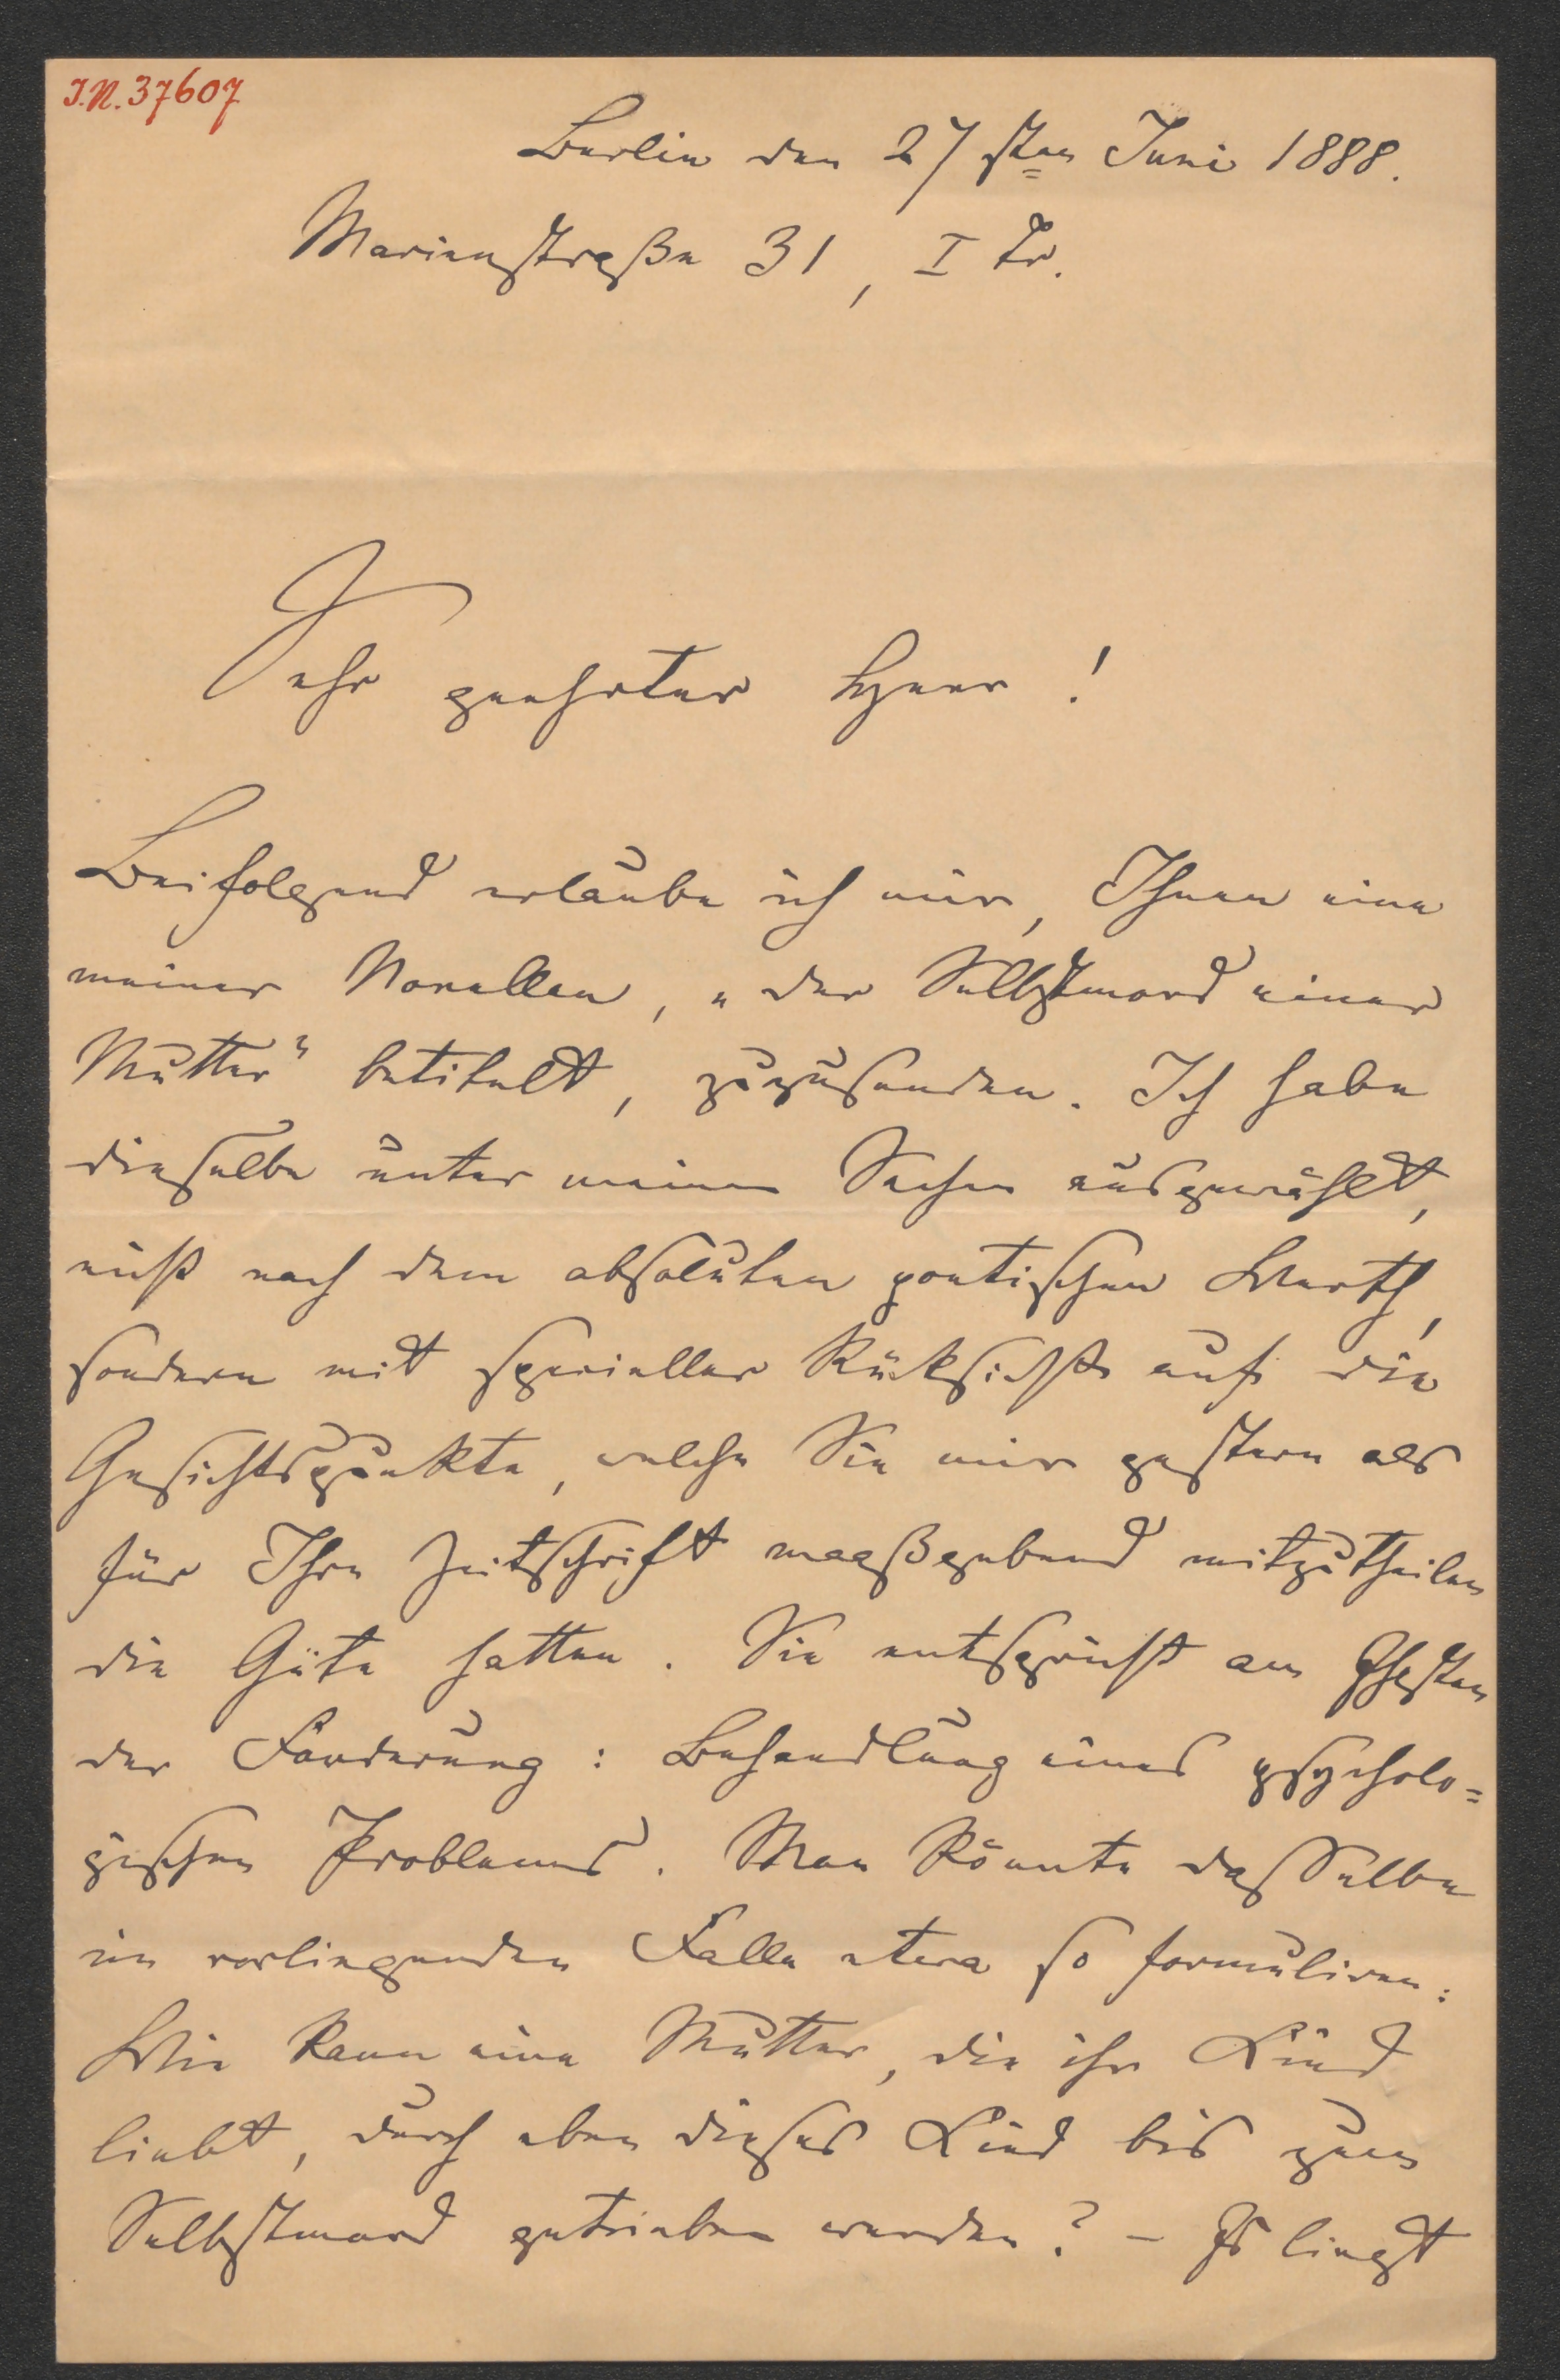 I.N. 37607
Berlin den 27sten Juni 1888.
Marienstraße 31, I Tr.
Sehr geehrter Herr!
Beifolgend erlaube ich mir, Ihnen eine
meiner Novellen, „der Selbstmord einer
Mutter“ betitelt, zuzusenden. Ich habe
dieselbe unter meinen Sachen ausgewählt,
nicht nach dem absoluten poetischen Werth,
sondern mit specieller Rücksicht auf die
Gesichtspunkte, welche Sie mir gestern als
für Ihre Zeitschrift maaßgebend mitzutheilen
die Güte hatten. Sie entspricht am Ehesten
der Forderung: Behandlung eines psycholo=
gischen Problemes. Man könnte dasselbe
im vorliegenden Falle etwa so formuliren:
Wie kann eine Mutter, die ihr Kind
liebt, durch eben dieses Kind bis zum
Selbstmord getrieben werden? – Es liegt